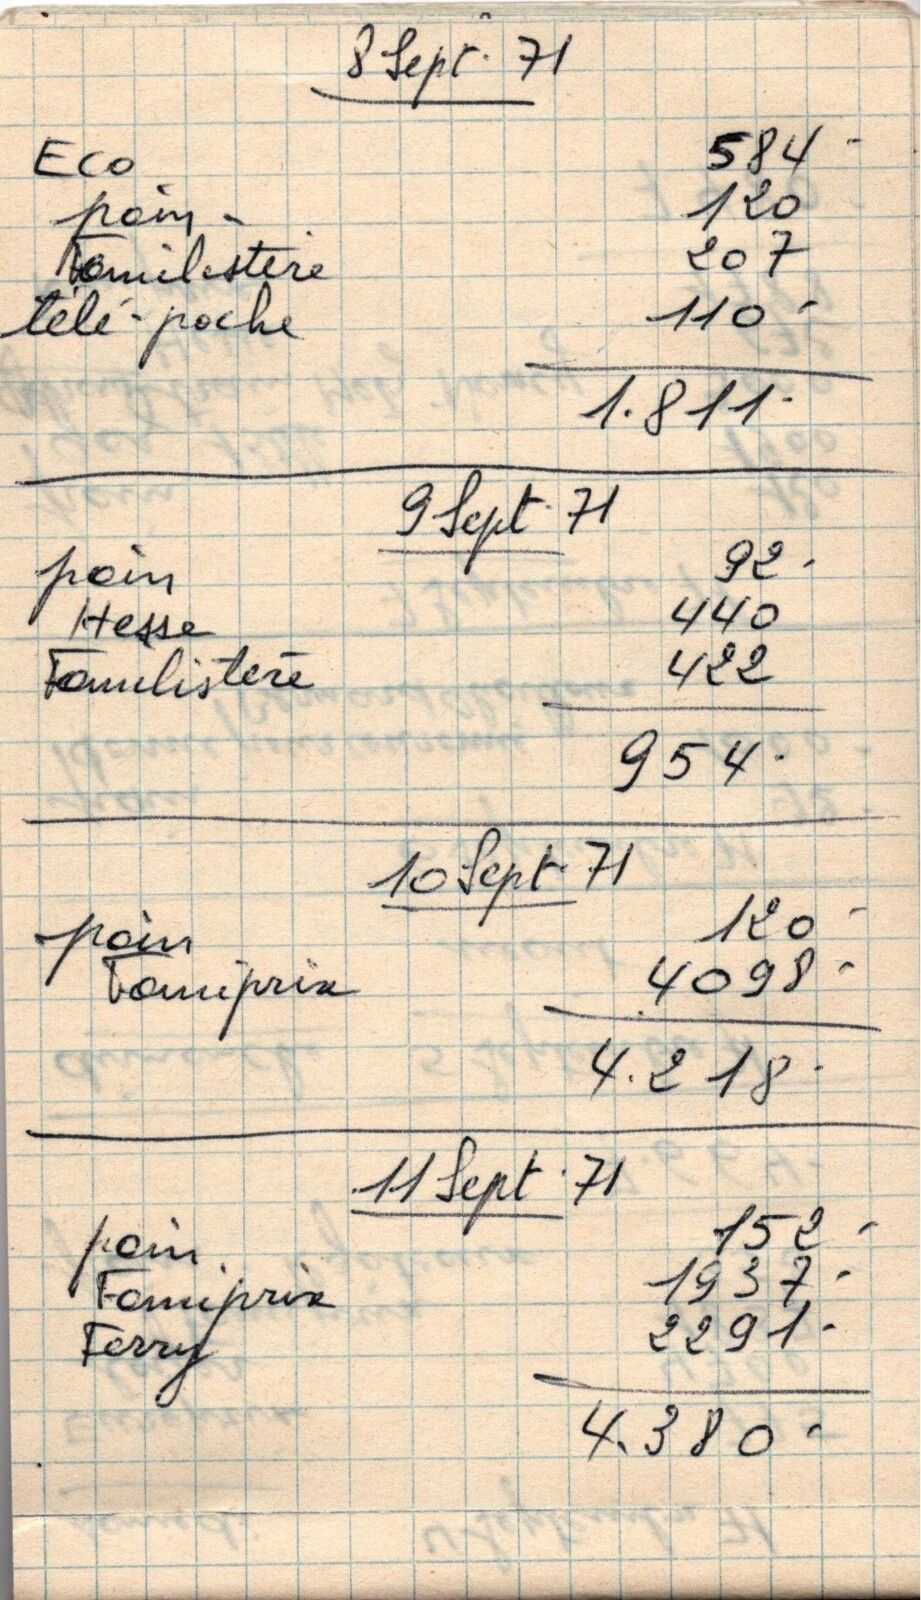 8 Sept. 71
Eco 584-
pain - 120
Familistère 207
télé-poche 110-
1.811-
9 Sept. 71
pain 92-
Hesse 440
Familistère 422
954-
10 Sept. 71
pain 120-
Famiprix 4098-
4.218-
11 Sept. 71
pain 152-
Famiprix 1937-
Ferry 2291-
4.380-